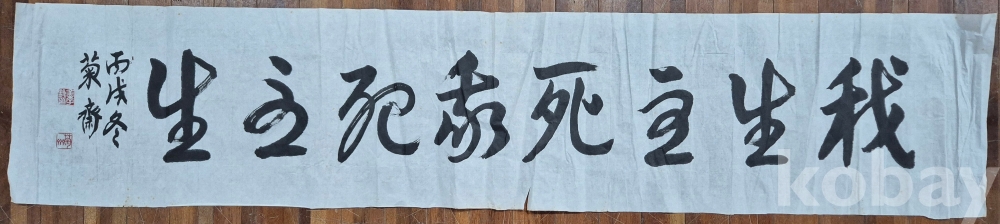 我生主死我死主生
丙戌冬
菊齋
kobay